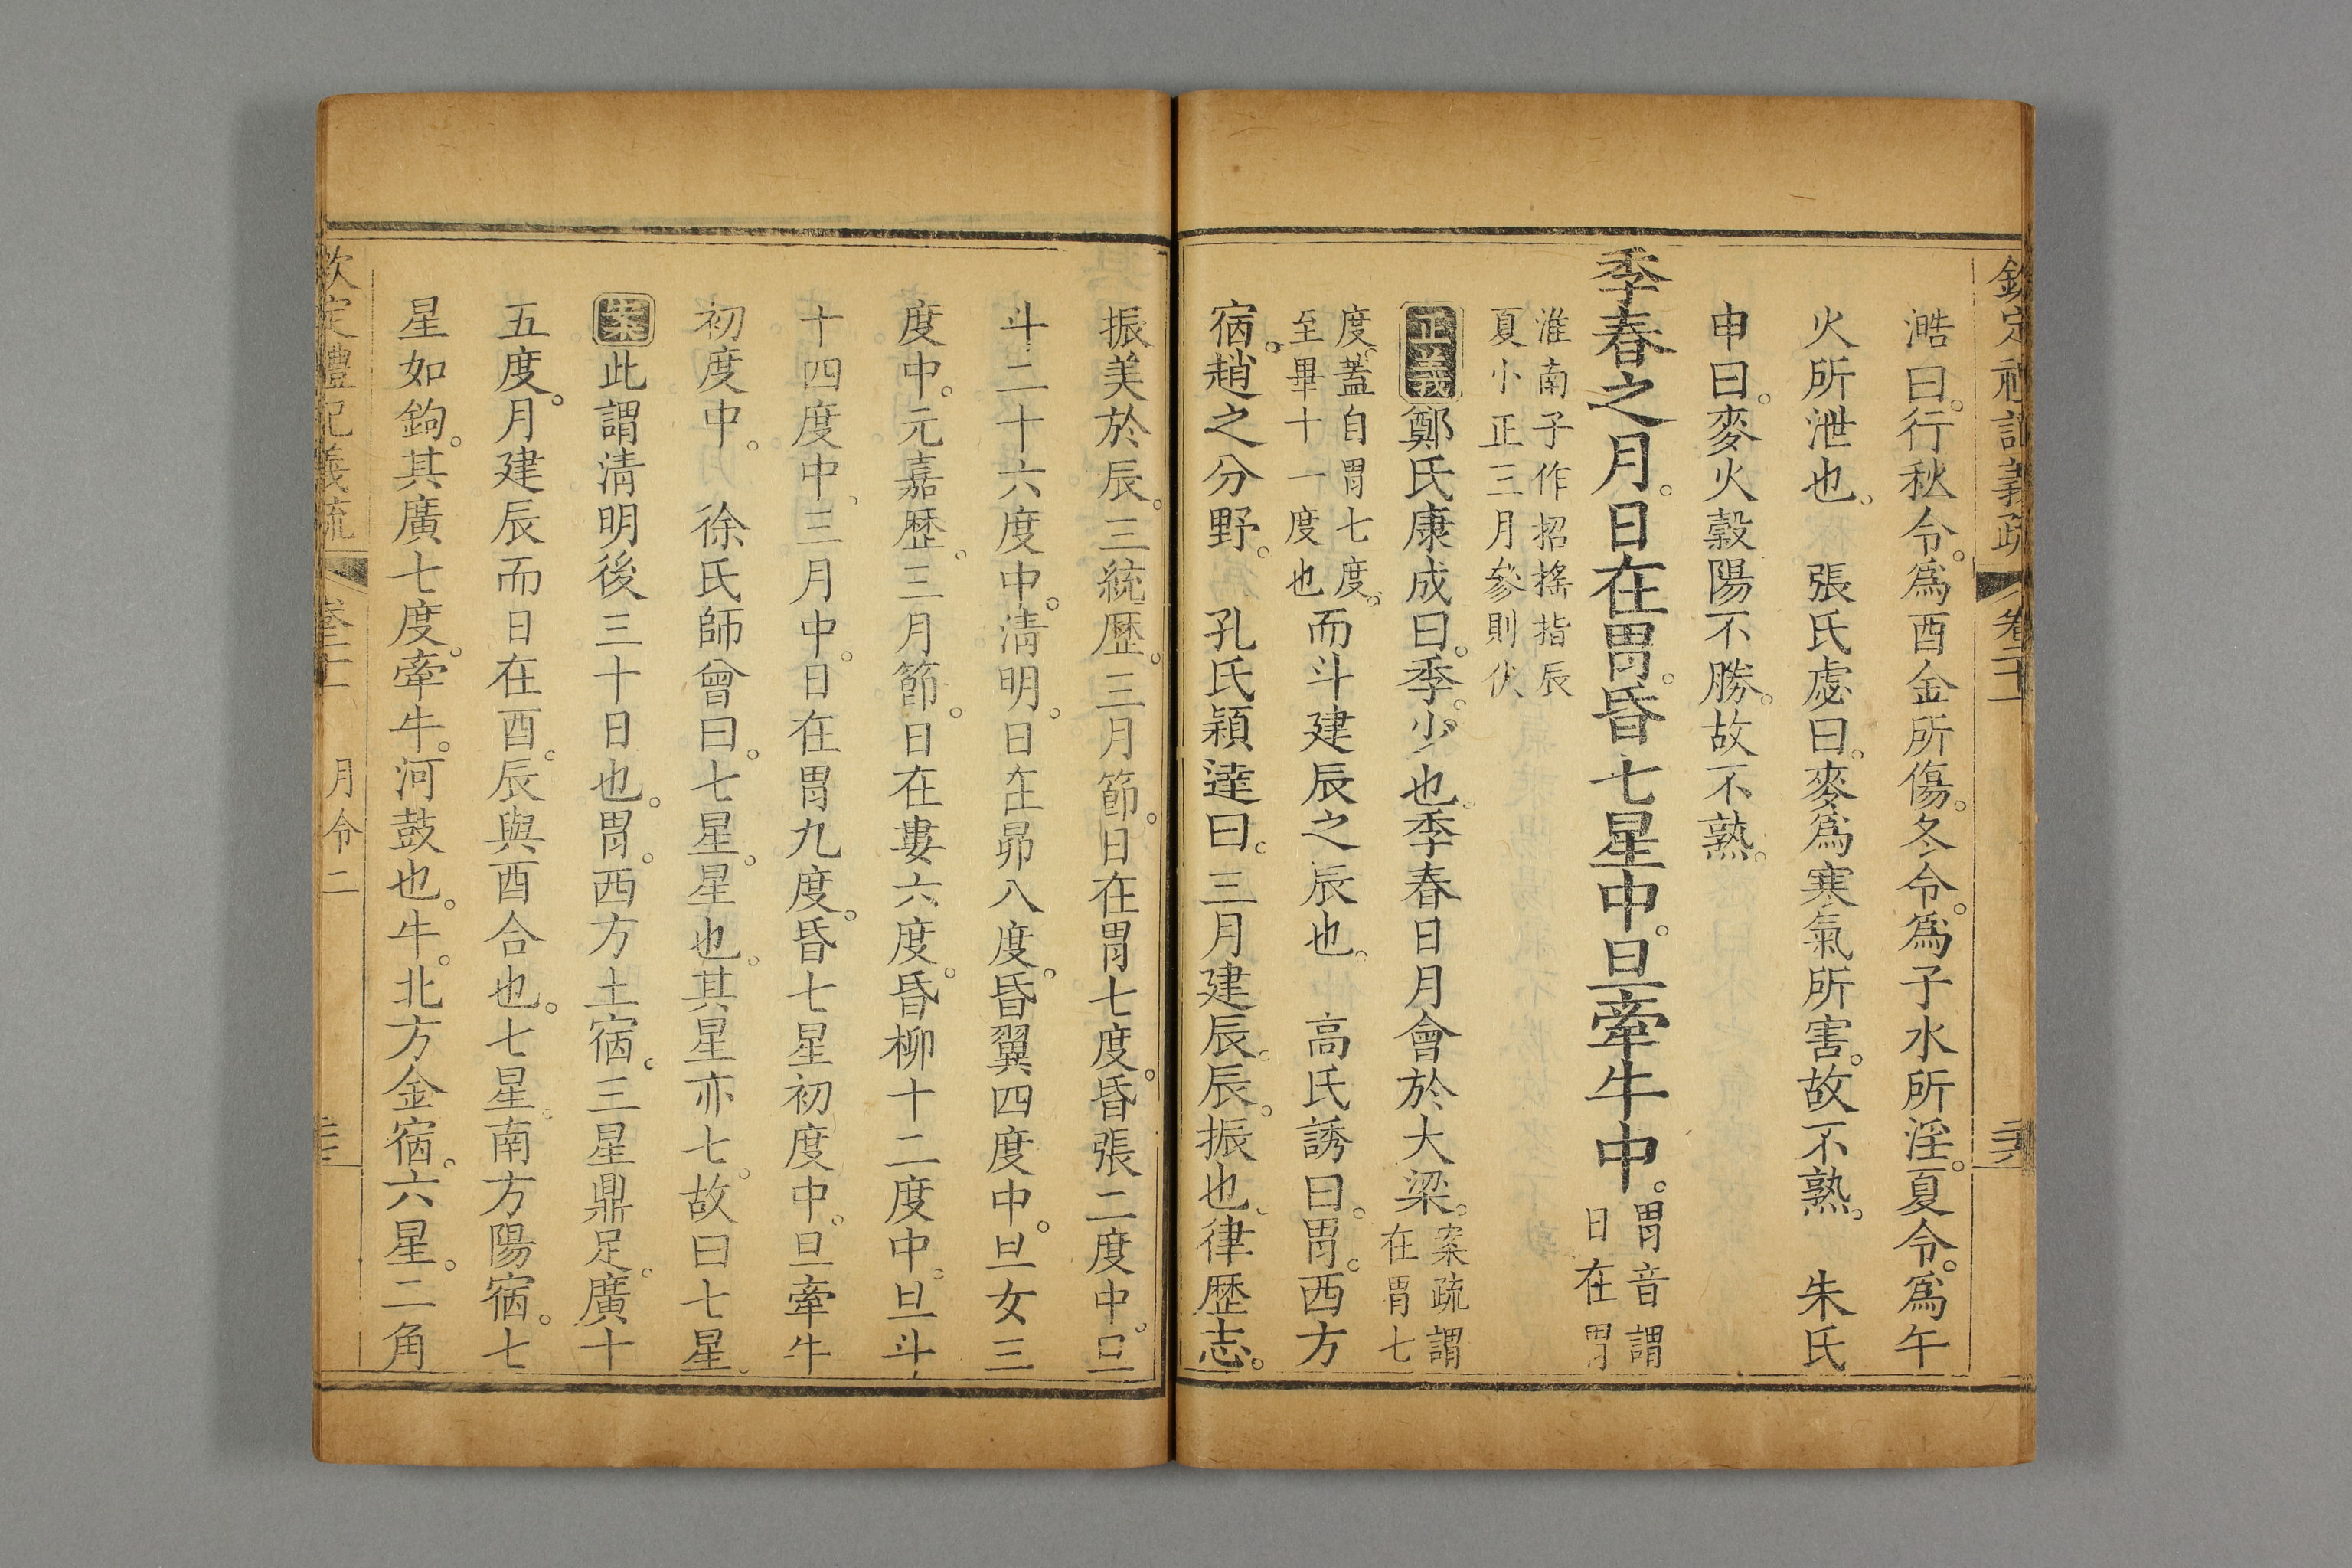 欽定禮記義疏 卷二十一
澔曰。行秋令。爲酉金所傷。冬令。爲子水所淫。夏令。爲午
火所泄也。 張氏虙曰。麥爲寒氣所害。故不熟。 朱氏
申曰。麥火穀。陽不勝。故不熟。
季春之月。日在胃。昏七星中。旦牽牛中。胃音謂
日在胃
淮南子作招搖指辰
夏小正三月參則伏
正義鄭氏康成曰。季。少也。季春日月會於大梁。案疏謂
在胃七
度。蓋自胃七度。
至畢十一度也
而斗建辰之辰也。 高氏誘曰。胃。西方
宿。趙之分野。 孔氏穎達曰。三月建辰。辰。振也。律歷志。
振美於辰。三統歷。三月節。日在胃七度。昏張二度中。旦
斗二十六度中。淸明。日在昴八度。昏翼四度中。旦女三
度中。元嘉歷。三月節。日在婁六度。昏柳十二度中。旦斗
十四度中、三月中。日在胃九度。昏七星初度中。旦牽牛
初度中。 徐氏師曾曰。七星。星也。其星亦七。故曰七星。
案此謂淸明後三十日也。胃。西方土宿。三星鼎足。廣十
五度。月建辰而日在酉。辰與酉合也。七星。南方陽宿。七
星如鉤。其廣七度。牽牛。河鼓也。牛。北方金宿。六星。二角
欽定禮記義疏 卷二十一 月令二